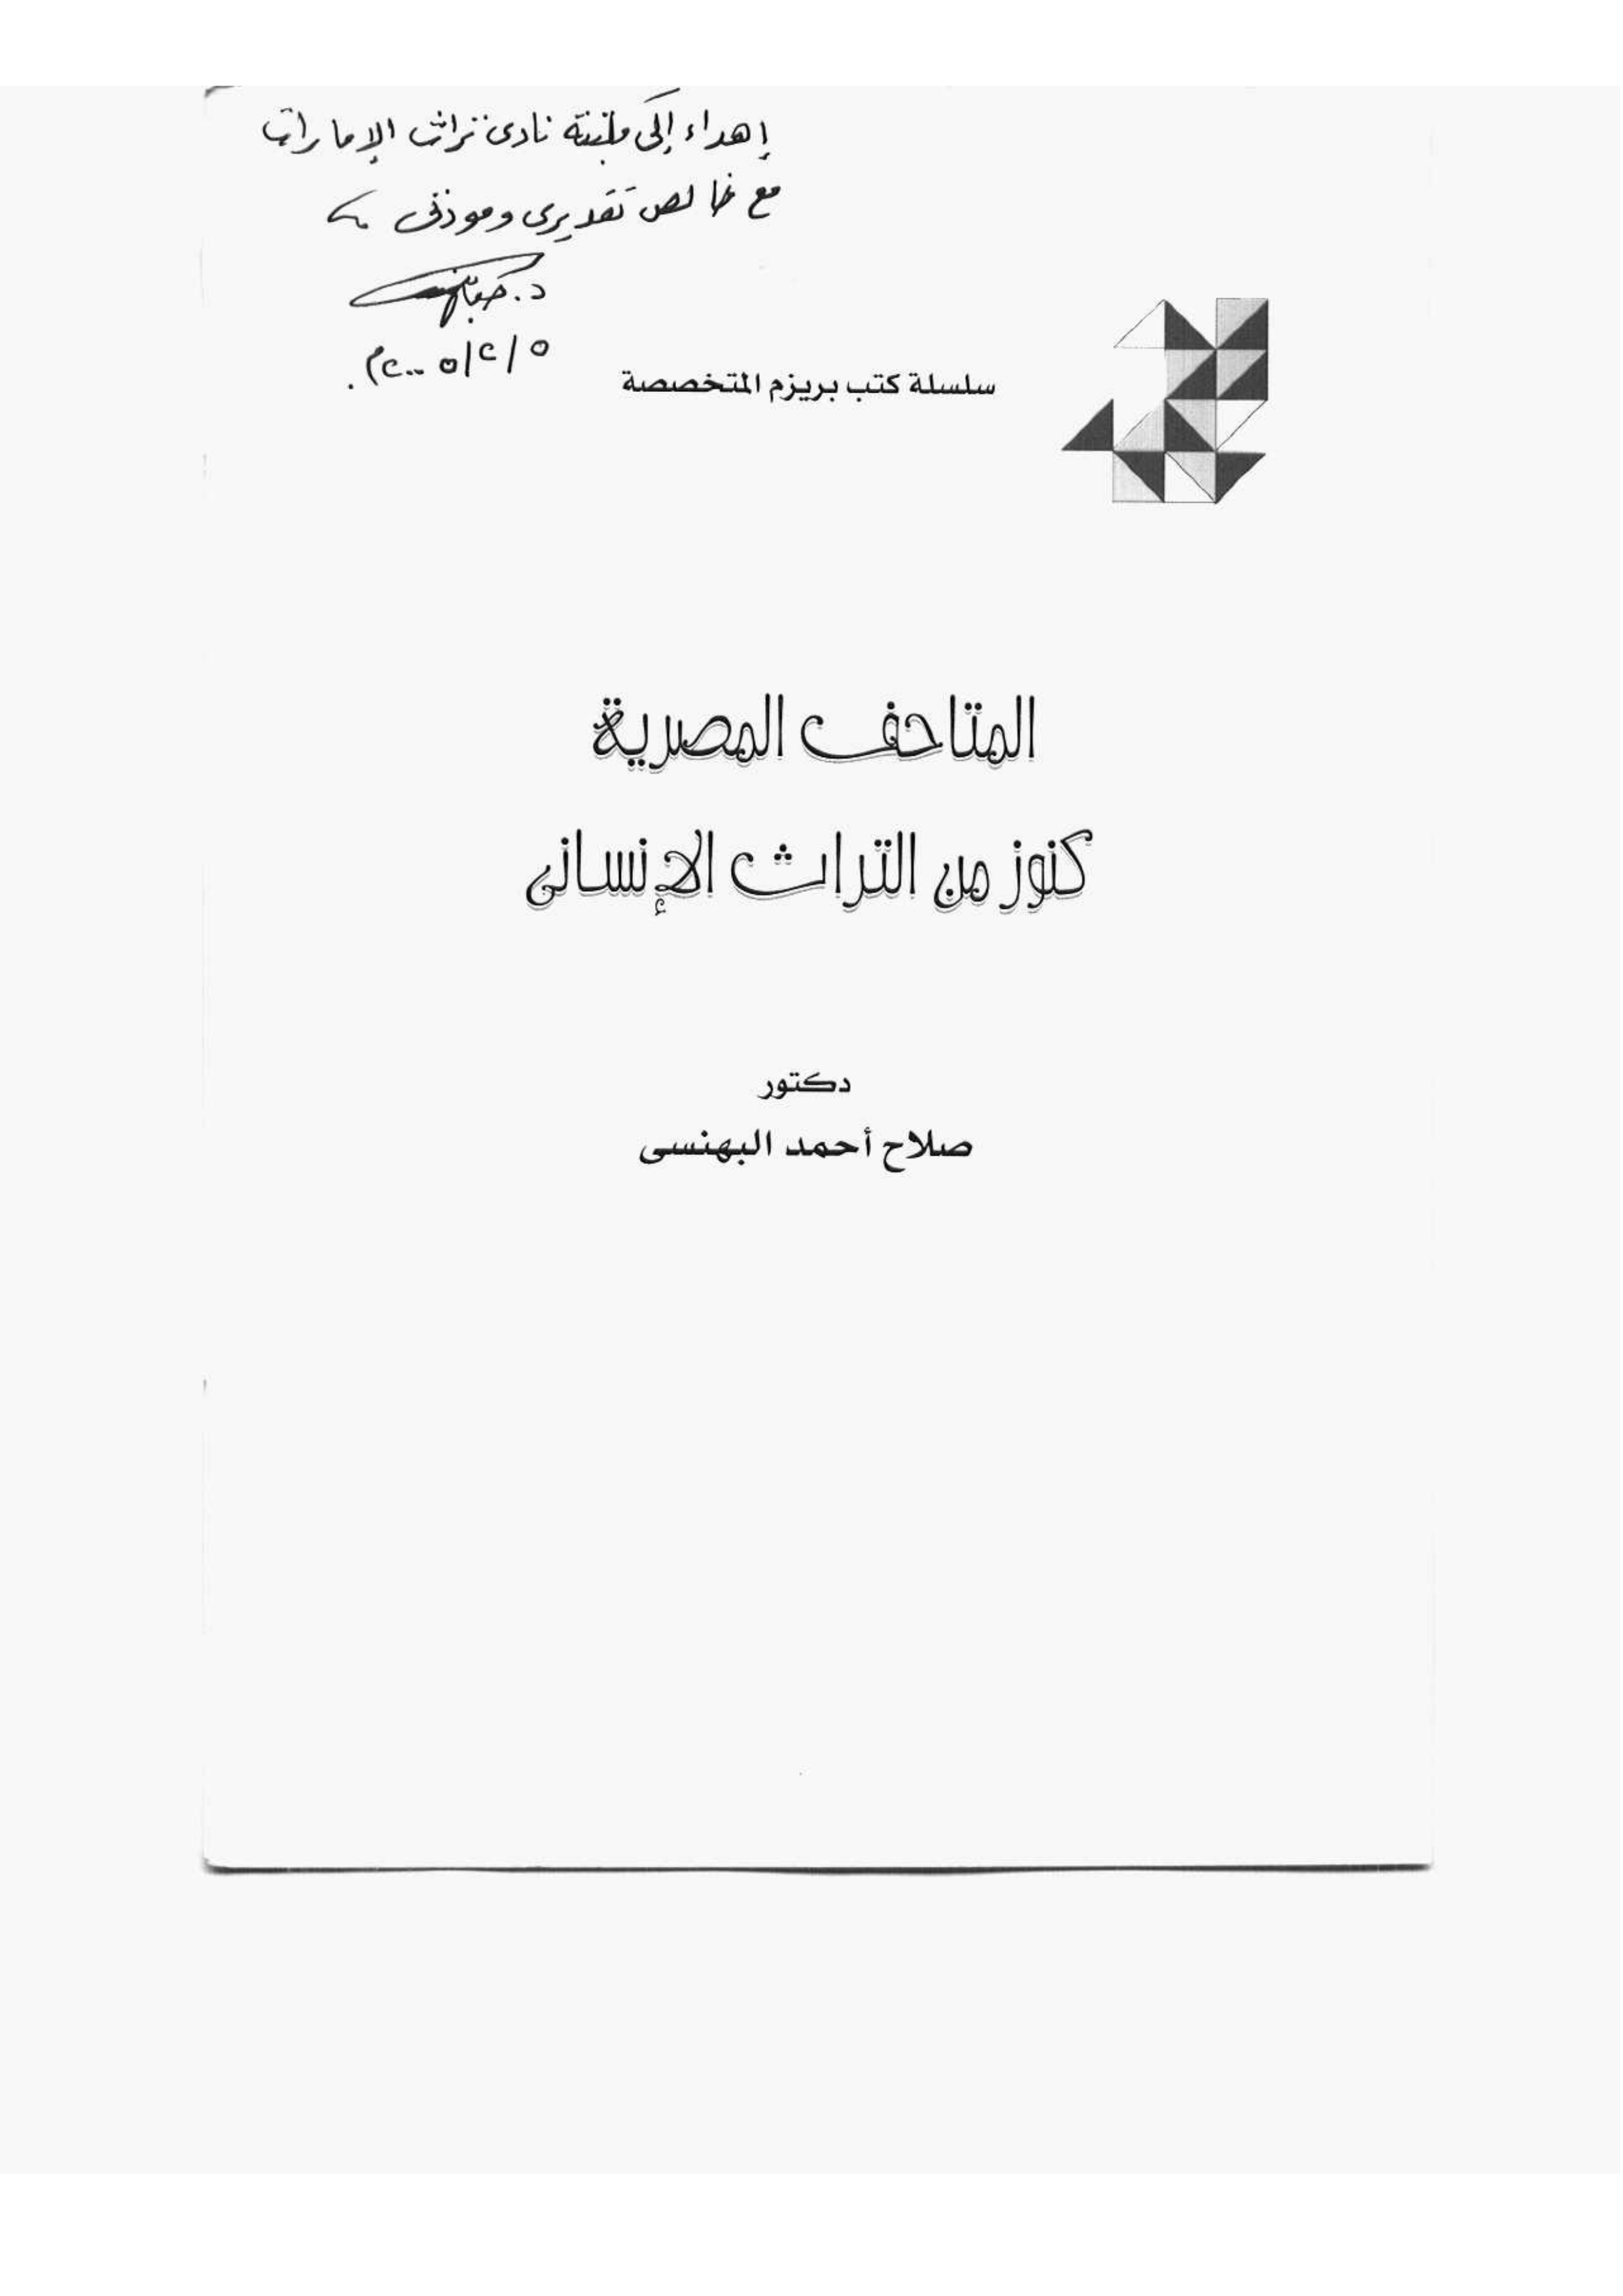 إهداء إلى مكتبة نادى تراث الإمارات
مع خالص تقديرى ومودتى
د.
٥/٢/٢٠٠٥م.
سلسلة كتب بريزم المتخصصة
المتاحف المصرية
كنوز من التراث الإنسانى
دكتور
صلاح أحمد البهنسى